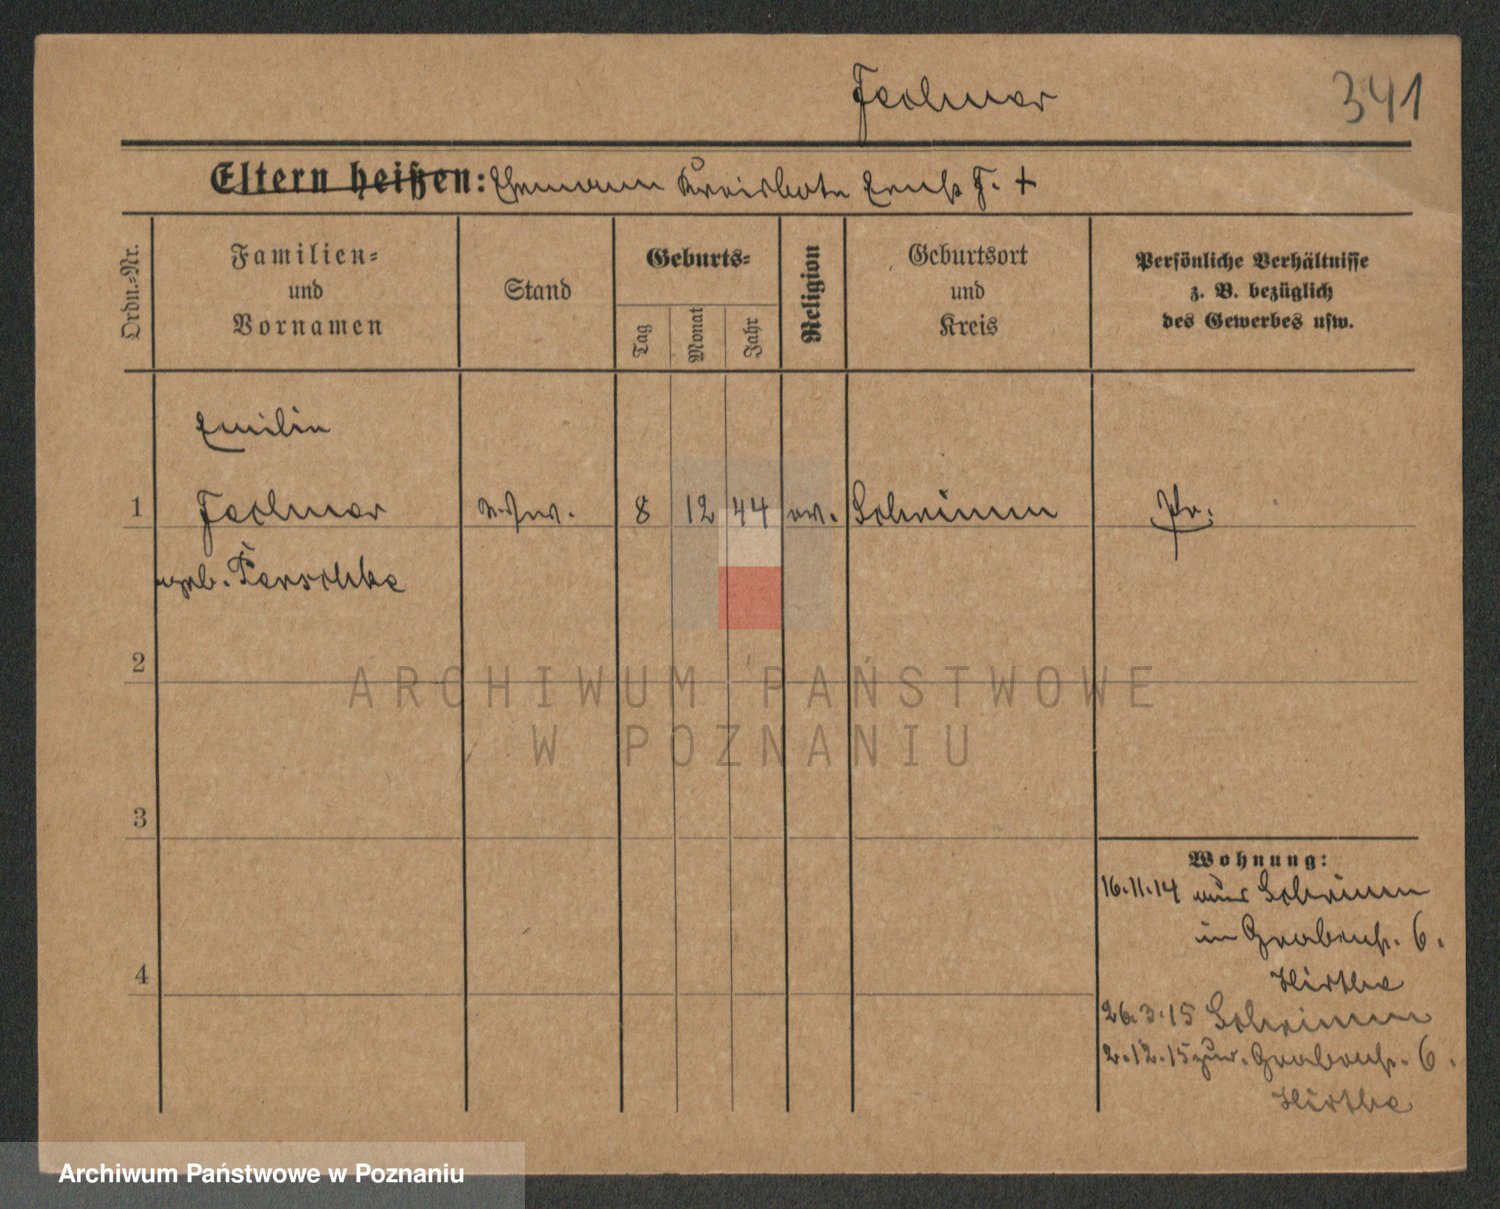 Feolmer
341
Eltern heißen: Ehemann Kreisbote Ernst F. +
Ordn.-Nr.
Familien-
und
Vornamen
Stand
Geburts-
Tag
Monat
Jahr
Religion
Geburtsort
und
Kreis
Persönliche Verhältnisse
z. B. bezüglich
des Gewerbes usw.
Emilie
1 8 12 44 ev. Schrimm Pr.
geb.
2
3
4
Wohnung:
16.11.14 aus Schrimm
in Grabenstr. 6.
Hirthe
26.3.15 Schrimm
2.12.15 zur. Grabenstr. 6.
Hirthe
ARCHIWUM PAŃSTWOWE
W POZNANIU
Archiwum Państwowe w Poznaniu